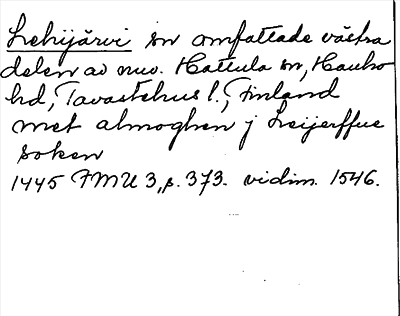 Lehijärvi sn omfattade västra
delen av nuv. Hattula sn, Hauho
hd, Tavastehus l., Finland
met almoghen j Leijerffue
soken
1445 FMU 3, s. 373. vidim. 1546.